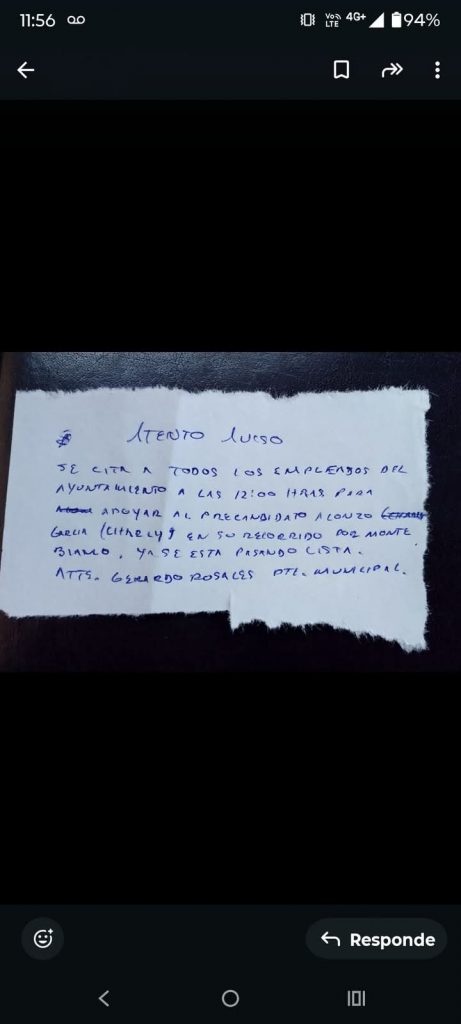 11:56
Vo
LTE
4G+
94%
ATENTO AVISO
SE CITA A TODOS LOS EMPLEADOS DEL
AYUNTAMIENTO A LAS 12:00 HRAS PARA
APOYAR AL PRECANDIDATO ALONZO
GARCIA EN SU RECORRIDO POR MONTE
BLANCO, YA SE ESTA PASANDO LISTA.
ATTE. GERARDO ROSALES PTE. MUNICIPAL.
Responde